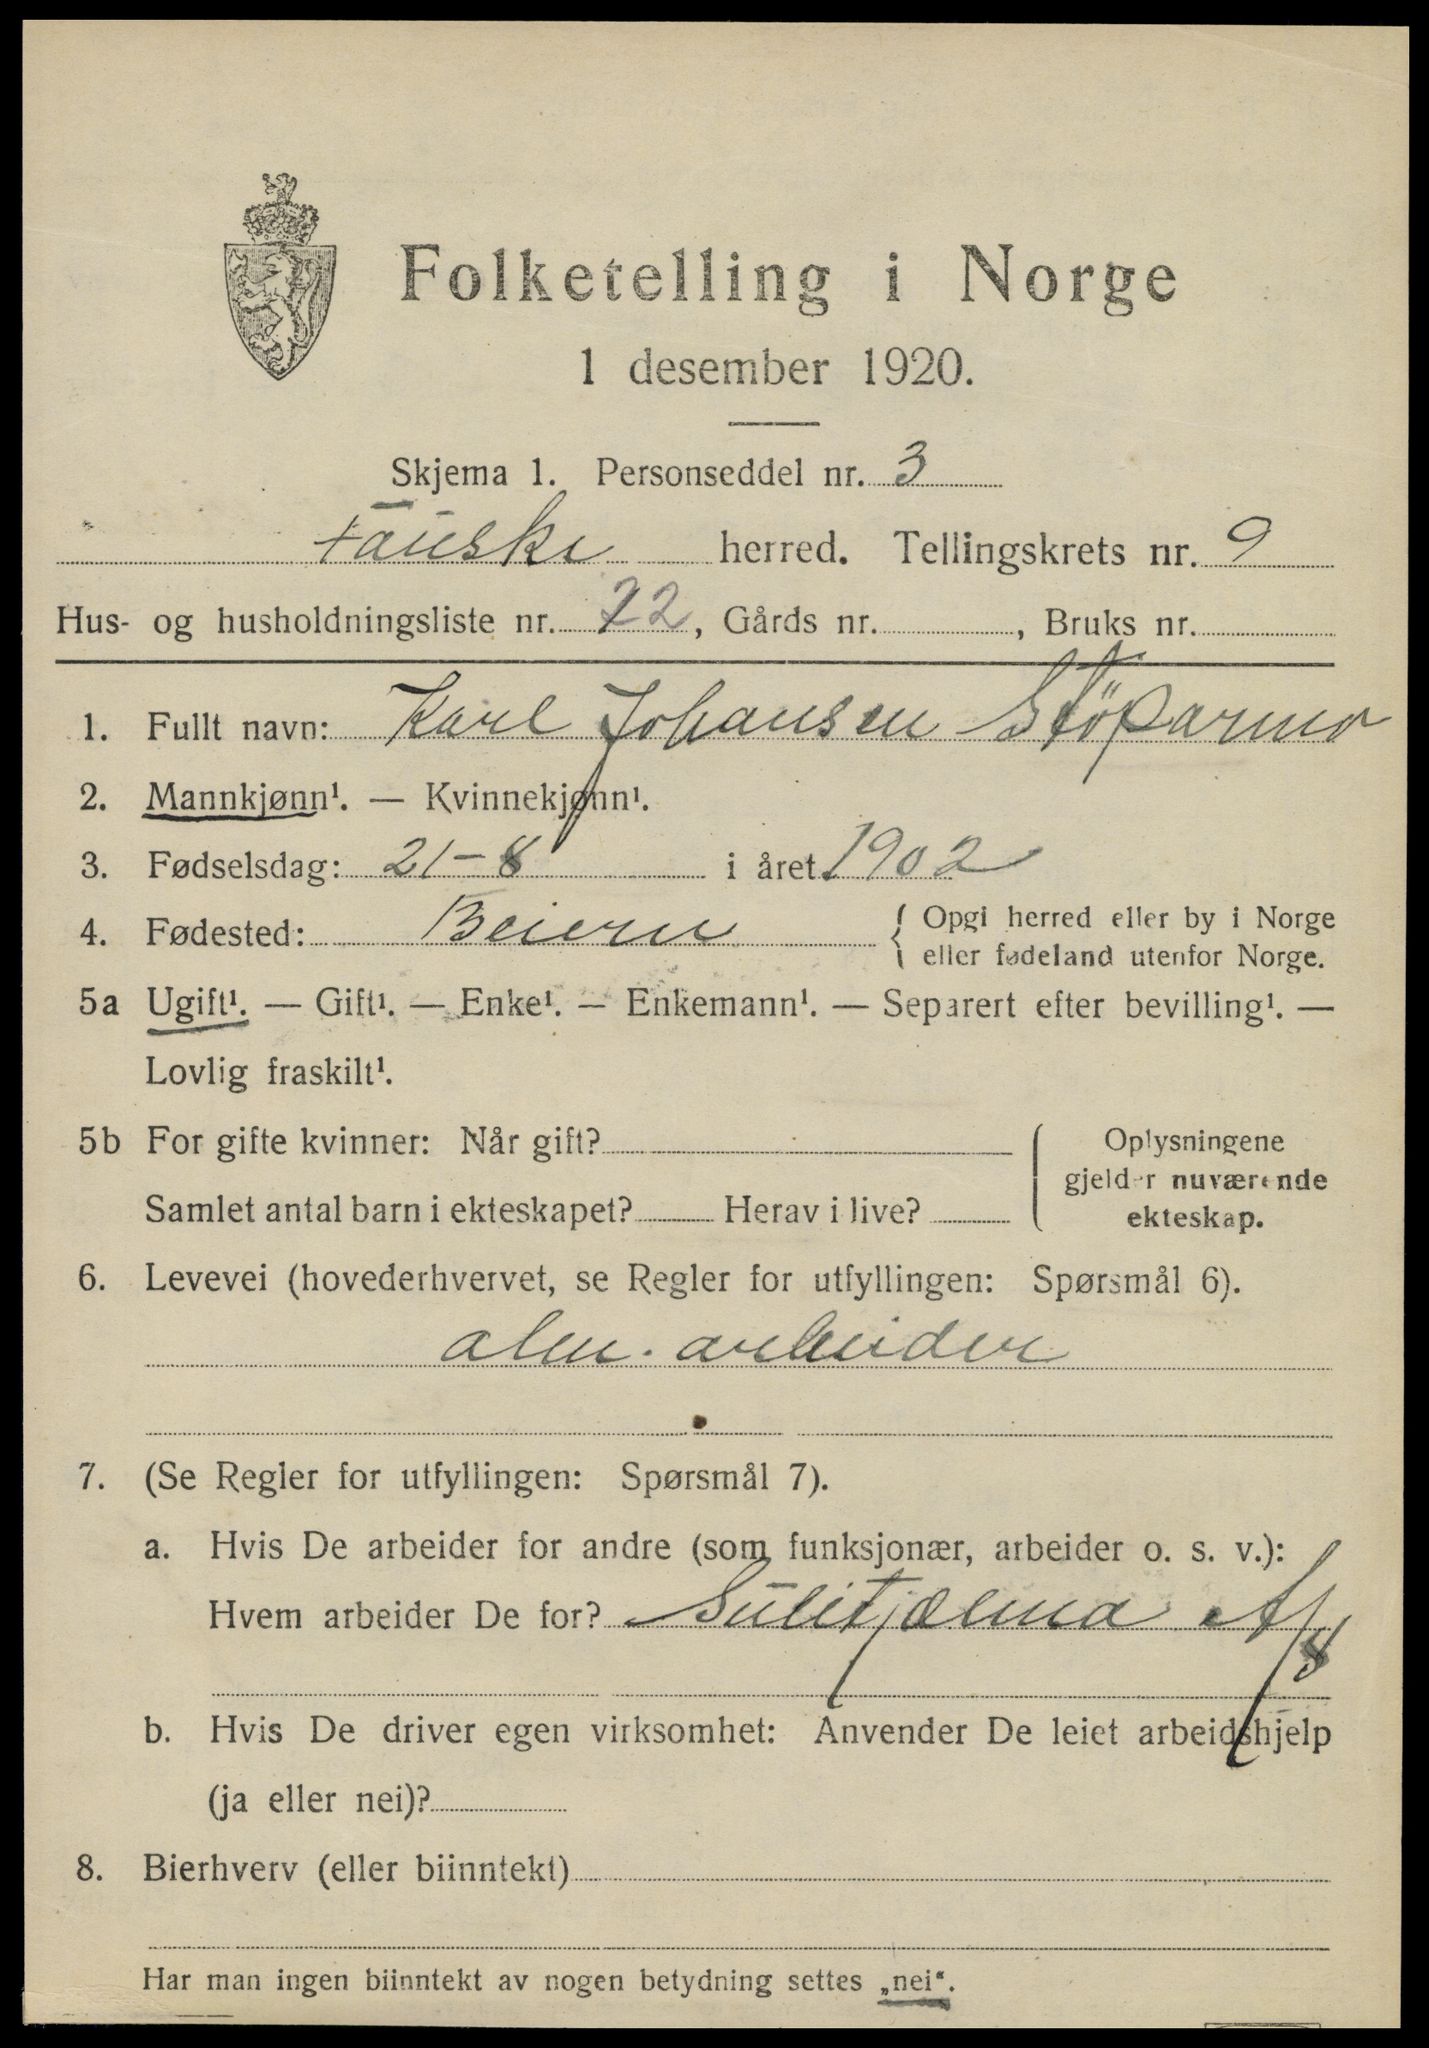 Folketelling i Norge
1 desember 1920.
Skjema 1. Personseddel nr. 3
Fauske herred. Tellingskrets nr. 9
Hus- og husholdningsliste nr. 72, Gårds nr. , Bruks nr.
1. Fullt navn: Karl Johansen
2. Mannkjønn¹. — Kvinnekjønn¹.
3. Fødselsdag: 21-8 i året 1902
4. Fødested: Beiern { Opgi herred eller by i Norge
eller fødeland utenfor Norge.
5a Ugift¹. — Gift¹. — Enke¹. — Enkemann¹. — Separert efter bevilling¹. —
Lovlig fraskilt¹.
5b For gifte kvinner: Når gift?
Samlet antal barn i ekteskapet? Herav i live?
Oplysningene
gjelder nuværende
ekteskap.
6. Levevei (hovederhvervet, se Regler for utfyllingen: Spørsmål 6).
alm. arbeider
7. (Se Regler for utfyllingen: Spørsmål 7).
a. Hvis De arbeider for andre (som funksjonær, arbeider o. s. v.):
Hvem arbeider De for? Sulitjælma A/S
b. Hvis De driver egen virksomhet: Anvender De leiet arbeidshjelp
(ja eller nei)?
8. Bierhverv (eller biinntekt)
Har man ingen biinntekt av nogen betydning settes „nei“.